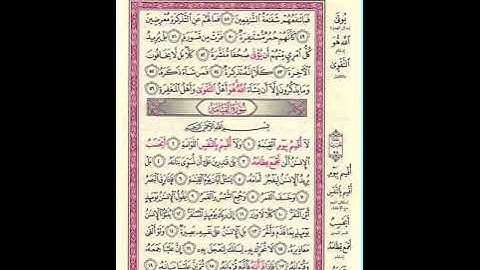 فَمَا تَنفَعُهُمْ شَفَٰعَةُ ٱلشَّٰفِعِينَ ٤٨ فَمَا لَهُمْ عَنِ ٱلتَّذْكِرَةِ مُعْرِضِينَ
٤٩ كَأَنَّهُمْ حُمُرٌ مُّسْتَنفِرَةٌ ٥٠ فَرَّتْ مِن قَسْوَرَةٍ ٥١ بَلْ يُرِيدُ
كُلُّ ٱمْرِئٍ مِّنْهُمْ أَن يُوتَىٰ صُحُفًا مُّنَشَّرَةً ٥٢ كَلَّا بَل لَّا يَخَافُونَ
ٱلْآخِرَةَ ٥٣ كَلَّا إِنَّهُ تَذْكِرَةٌ ٥٤ فَمَن شَاءَ ذَكَرَهُ ٥٥
وَمَا يَذْكُرُونَ إِلَّا أَن يَشَاءَ ٱللَّهُ هُوَ أَهْلُ ٱلتَّقْوَىٰ وَأَهْلُ ٱلْمَغْفِرَةِ ٥٦
سُورَةُ ٱلْقِيَامَةِ
بِسْمِ ٱللَّهِ ٱلرَّحْمَٰنِ ٱلرَّحِيمِ
لَا أُقْسِمُ بِيَوْمِ ٱلْقِيَٰمَةِ ١ وَلَا أُقْسِمُ بِٱلنَّفْسِ ٱللَّوَّامَةِ ٢ أَيَحْسِبُ
ٱلْإِنسَٰنُ أَلَّن نَّجْمَعَ عِظَامَهُ ٣ بَلَىٰ قَٰدِرِينَ عَلَىٰ أَن نُّسَوِّيَ بَنَانَهُ ٤ بَلْ
يُرِيدُ ٱلْإِنسَٰنُ لِيَفْجُرَ أَمَامَهُ ٥ يَسْـَٔلُ أَيَّانَ يَوْمُ ٱلْقِيَٰمَةِ ٦ فَإِذَا بَرِقَ ٱلْبَصَرُ
٧ وَخَسَفَ ٱلْقَمَرُ ٨ وَجُمِعَ ٱلشَّمْسُ وَٱلْقَمَرُ ٩ يَقُولُ ٱلْإِنسَٰنُ يَوْمَئِذٍ
أَيْنَ ٱلْمَفَرُّ ١٠ كَلَّا لَا وَزَرَ ١١ إِلَىٰ رَبِّكَ يَوْمَئِذٍ ٱلْمُسْتَقَرُّ ١٢ يُنَبَّؤُا ٱلْإِنسَٰنُ
يَوْمَئِذٍ بِمَا قَدَّمَ وَأَخَّرَ ١٣ بَلِ ٱلْإِنسَٰنُ عَلَىٰ نَفْسِهِ بَصِيرَةٌ ١٤ وَلَوْ أَلْقَىٰ
مَعَاذِيرَهُ ١٥ لَا تُحَرِّكْ بِهِ لِسَانَكَ لِتَعْجَلَ بِهِ ١٦ إِنَّ عَلَيْنَا جَمْعَهُ
وَقُرْآنَهُ ١٧ فَإِذَا قَرَأْنَٰهُ فَٱتَّبِعْ قُرْآنَهُ ١٨ ثُمَّ إِنَّ عَلَيْنَا بَيَانَهُ ١٩
يُوتَىٰ
ٱللَّهُ هُوَ
ٱلتَّقْوَىٰ
أُقْسِم بِيَوْمِ
أُقْسِم بِٱلنَّفْسِ
أَيَحْسِبُ
نَّجْمَع عِظَامَهُ